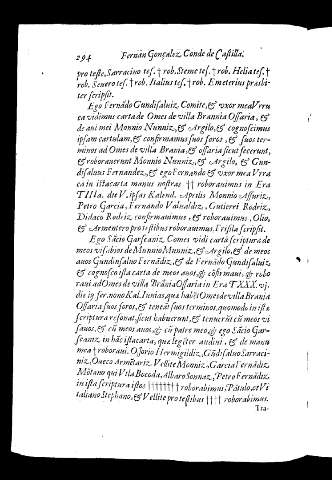 294 Fernán Gonçalez, Conde de Castilla.
pro teste, Sarracino tes. † rob. Steme tes. † rob. Helia tes. †
rob. Seuero tes. † rob. Italius tes. † rob. Emeterius præsbi-
ter scripsit.
Ego Fernãdo Gundisaluiz, Comite, & vxor mea Vrra
ca vidimus carta de Omes de villa Brannia Ossaria, &
de aui mei Monnio Nunniz, & Argilo, & cognoscimus
ipsam cartulam, & confirmamus suos foros, & suos ter-
minos ad Omes de villa Brania & ossaria sicut fecerunt,
& roborauerunt Monnio Nunniz, & Argilo, & Gun-
disaluus Fernandez, & ego Fernando & vxor mea Vrra
ca in ista carta manus nostras †† roborauimus in Era
Vipsas Kalend. Aprilis Monnio Assuriz,
Petro Garcia, Fernando Valualdiz, Gutierri Rodriz,
Didaco Rodriz confirmauimus, & roborauimus, Olio,
& Armentero pro testibus roborauimus, Frisila scripsit.
Ego Sãcio Garseaniz, Comes vidi carta scriptura de
meos visabios de Munnio Munniz, & Argilo, & de meos
auos Gundisaluo Fernãdiz, & de Fernãdo Gundisaluiz,
& cognosco ista carta de meos auos, & cõfirmaui, & robo
raui ad Omes de villa Brania Ossaria in Era TXXX. vj.
die in fer. nono Kal. Iunias, que habẽt Omes de villa Brania
Ossaria suos foros, & teneãt suos terminos, quomodo in ista
scriptura resonat, sicut habuerunt, & tenuerũt cũ meos vi
sauos, & cũ meos auos, & cũ patre meo, & ego Sãcio Gar-
seaniz, in hãc ista carta, qua legiter audiui, & de manu
mea † roboraui. Osorio Hermigildiz, Gũdisaluo Sarraci-
niz, Oueco Armẽtariz, Vellite Monniz, Garcia Fernãdiz
Mõtano qui Vila Bocoda, Albaro Sonnaz, Petro Fernãdiz
in ista scriptura istos ††††††† roborabimus, Pätulo, et Vi
taliano Stephano, & Vellite pro testibus †††† roborabimus.
Tra-